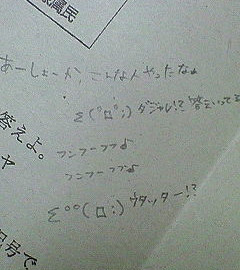 属民
あーしょーか、こんな人やったなぁ
Σ(°ロ°;) ダジャレ!? 答えいってる
答えよ。
ャ
フンフーフフ♪
フンフーフフ♪
Σ°°(ロ;) ウタッター!?
記号で